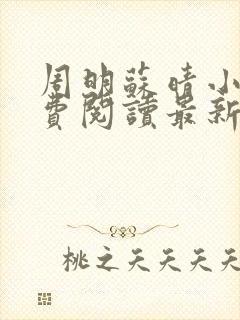 周明蘇晴小
費閱讀最新
桃之夭夭夭夭